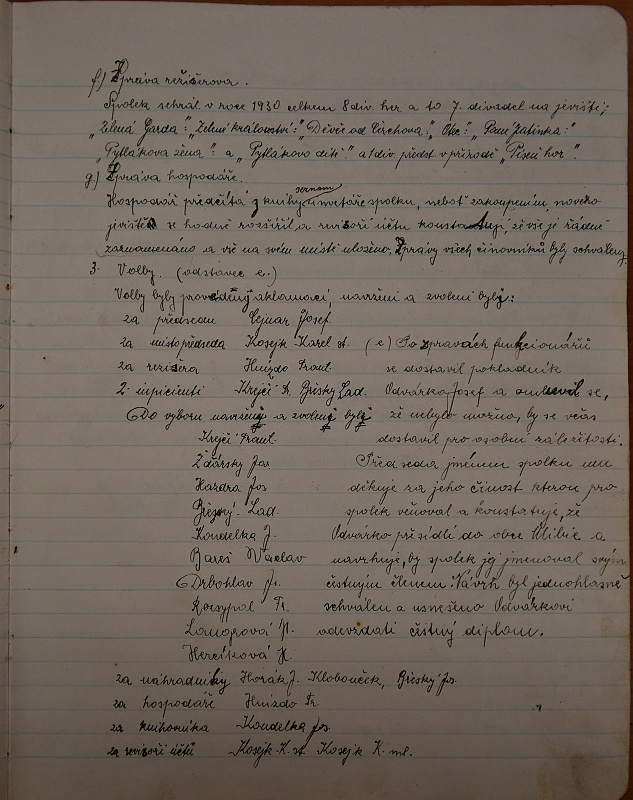 f.) Zpráva režisérova.
Spolek sehrál v roce 1930 celkem 8 div. her a to 7. divadel na jevišti;
„Zelená Garda": „Zelené království": „Děvče od Čerchova:" „Otec:" „Paní Katinka:"
„Pytlákova žena": a „Pytlákovo dítě". a 1 div. předst v přírodě „Píseň hor".
g.) Zpráva hospodáře.
Hospodář předčítá z knihy seznam inventáře spolku, neboť zakoupením, nového
jeviště se hodně rozšířil, a revisoři účtu konstatují, že vše je řádně
zaznamenáno a vše na svém místě uloženo. Zprávy všech činovníků byly schváleny.
3. Volby. (odstavec e.)
Volby byly provedeny aklamací, navrženi a zvoleni byly:
za předsedu Cejnar Josef
za místopředseda Kosejk Karel st. (e) Po zprávách funkcionářů
za reziséra Hnízdo Frant. se dostavil pokladník
2- inpicienti Krejčí Fr. Břéský Lad. Odvárka Josef a omluvil se,
Do výboru navrženy a zvoleny byly že nebylo možno, by se včas
Krejčí Frant. dostavil pro osobní záležitosti.
Žďárský Jos. Předseda jménem spolku mu
Hazdra Jos děkuje za jeho činost kterou pro
Břéský Lad. spolek věnoval a konstatuje, že
Koudelka J. Odvárko přesídlí do obce a
Bareš Václav navrhuje, by spolek jej jmenoval svým
Drbohlav Fr. čestným členem. Návrh byl jednohlasně
Rozsypal Fr. schválen a usnešeno Odvárkovi
odevzdati čestný diplom.
Hercíková
za náhradníky Horák J. Klobouček, Břéský Jos.
za hospodáře Hnízdo Fr.
za knihovníka Koudelka Jos.
za revizoři účtů Kosejk K. st. Kosejk K. ml.